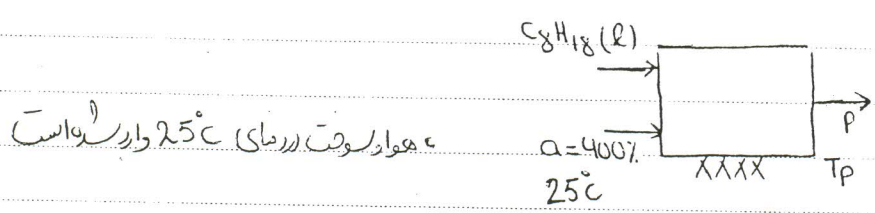 C8H18(l)
، هوا و سوخت در دمای 25°C وارد شده است
a=400%
25°C
P
Tp